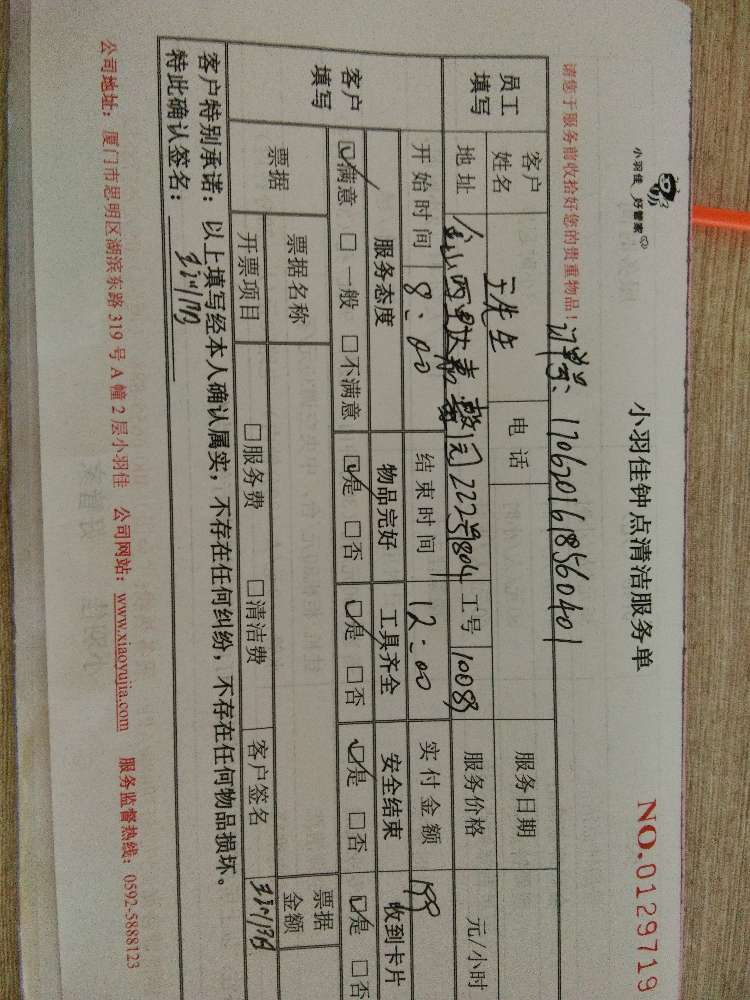 小羽佳 好管家
小羽佳钟点清洁服务单
NO.0129719
请您于服务前收拾好您的贵重物品！
订单号：1706201618560401
员工填写
客户姓名 王先生 电话 服务日期
地址 金山西里 园222号804 工号 10089 服务价格 元/小时
客户填写
开始时间 8:00 结束时间 12:00 实付金额
服务态度 物品完好 工具齐全 安全结束 收到卡片
☑满意 □一般 □不满意 ☑是 □否 ☑是 □否 ☑是 □否 ☑是 □否
票据 票据名称 票据金额
开票项目 □服务费 □清洁费 客户签名
客户特别承诺：以上填写经本人确认属实，不存在任何纠纷，不存在任何物品损坏。
特此确认签名：
公司地址：厦门市思明区湖滨东路 319 号 A 幢 2 层小羽佳 公司网站：www.xiaoyujia.com 服务监督热线：0592-5888123